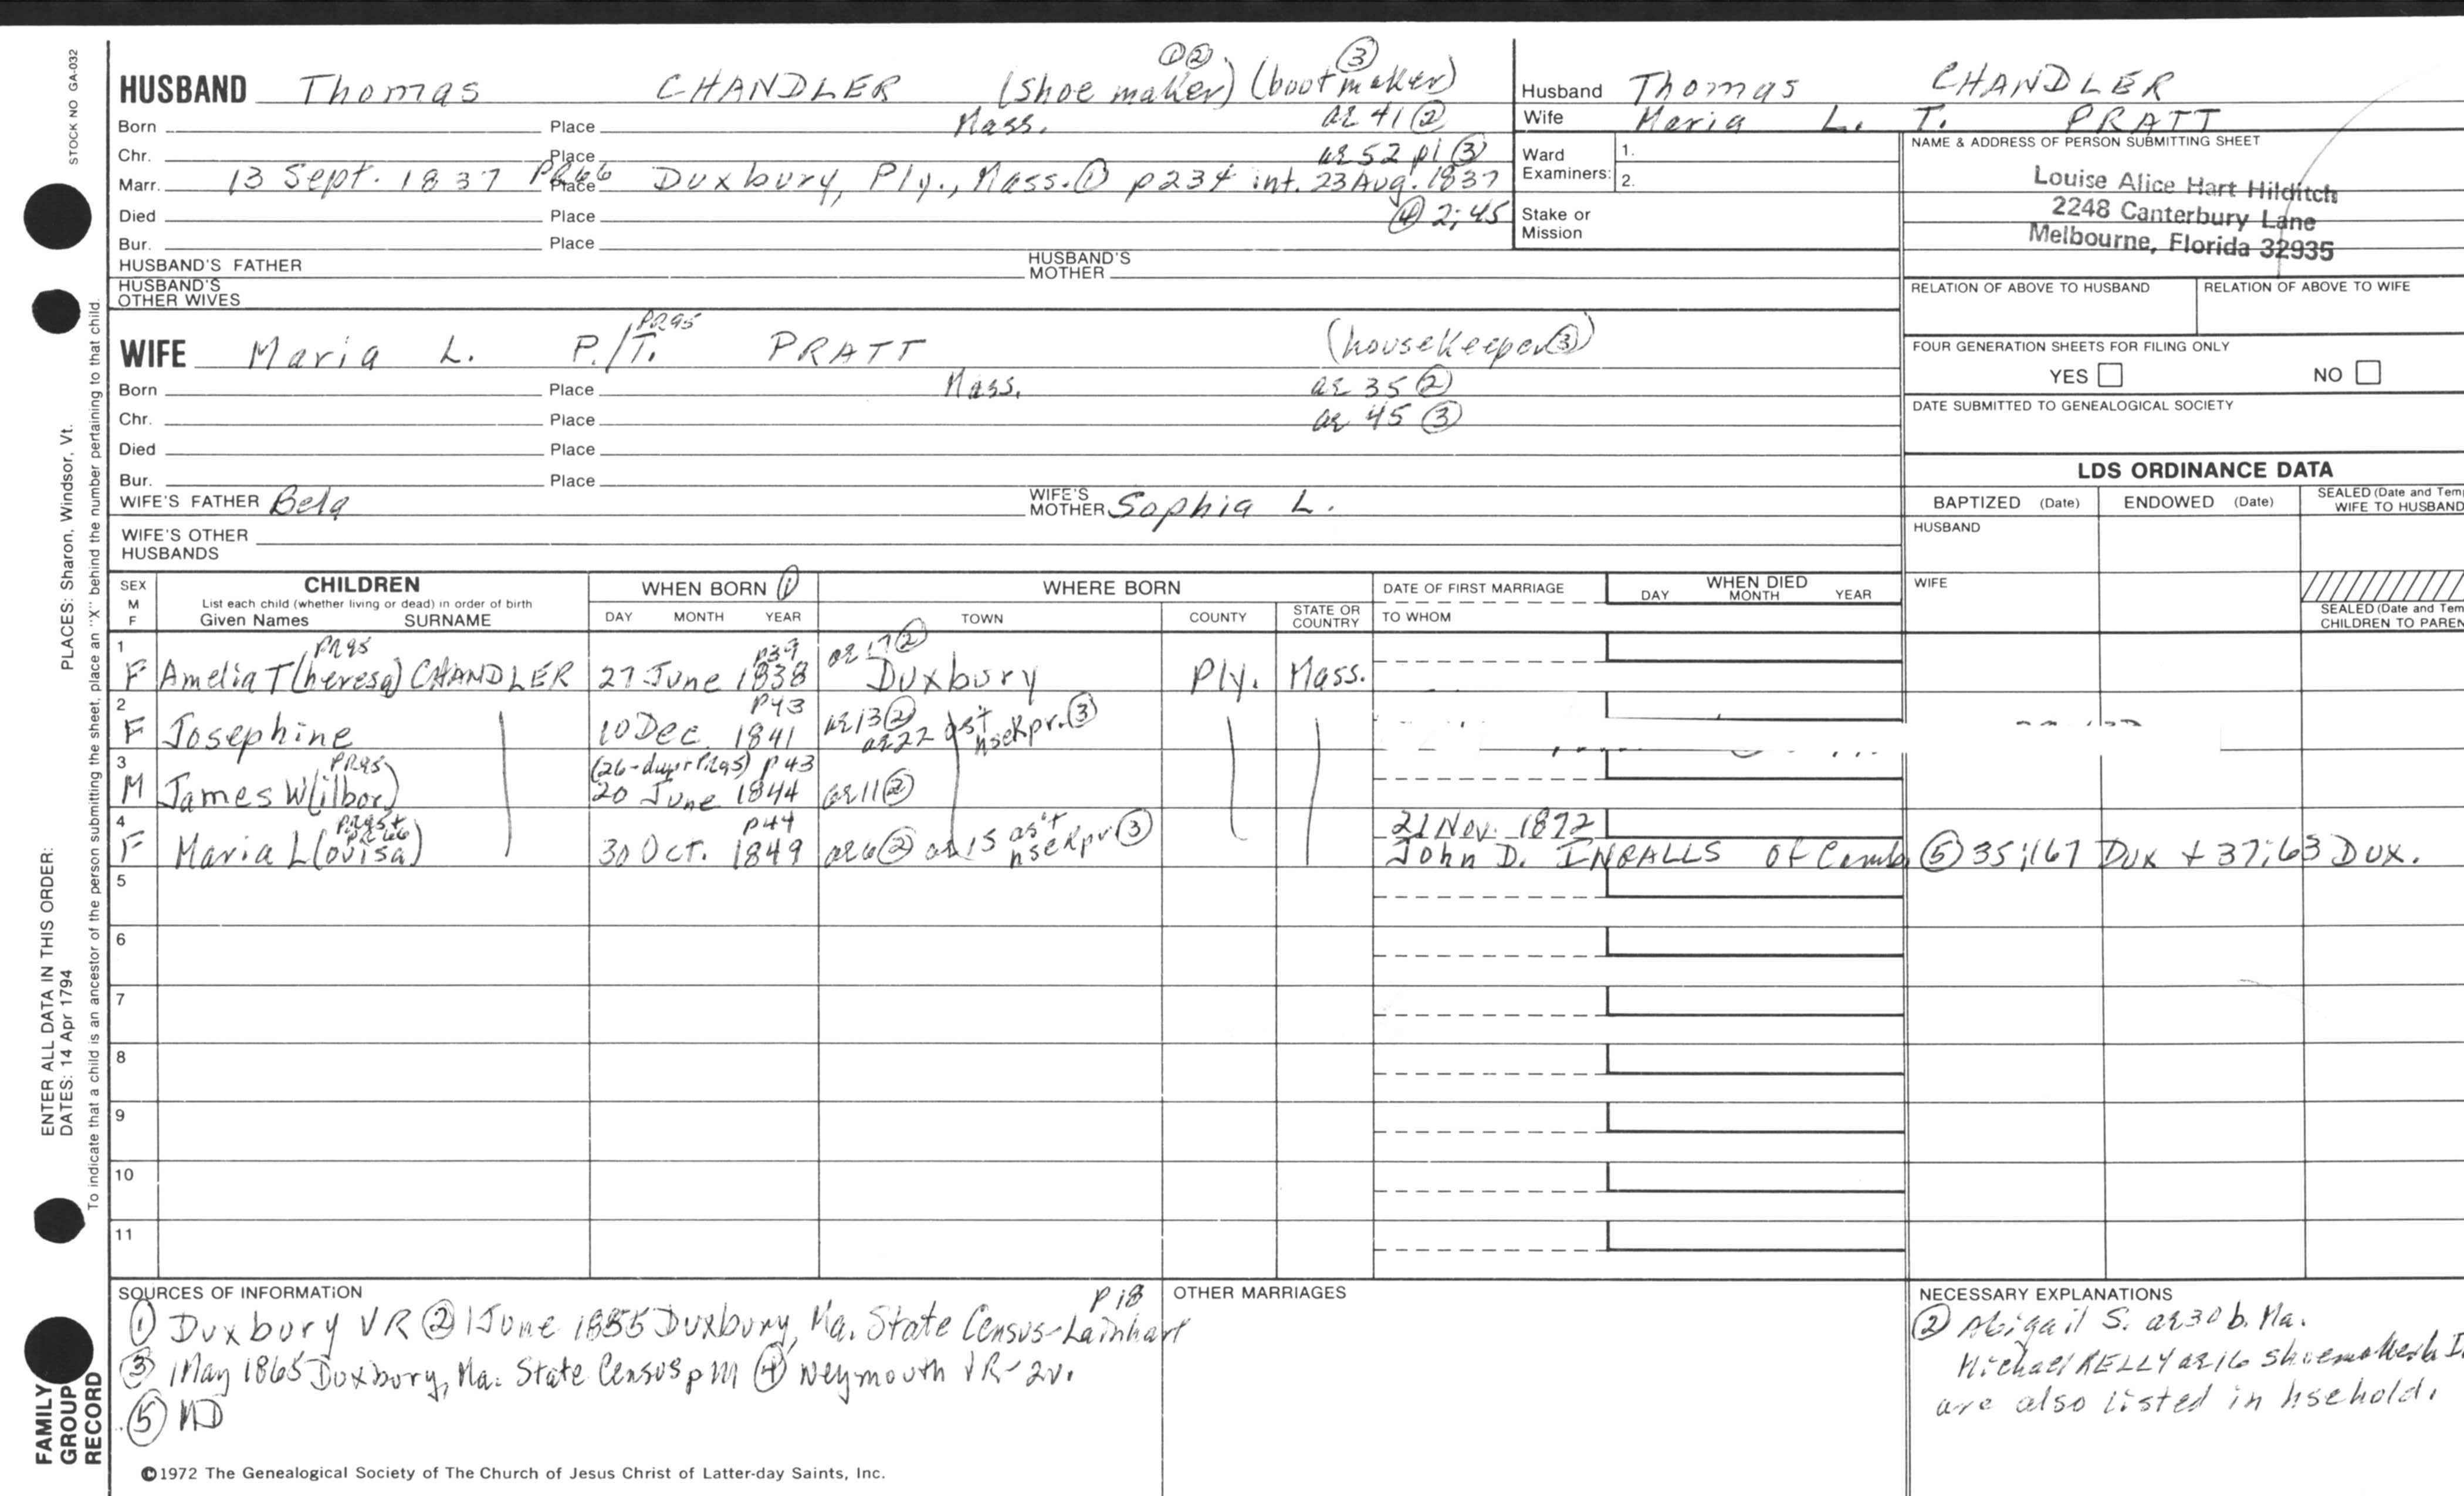 STOCK NO GA-032
HUSBAND Thomas CHANDLER (shoe maker) ①② (bootmaker) ③
Born Place Mass. ae 41 ②
Chr. Place ae 52 p1 ③
Marr. 13 Sept. 1837 PR66 Place Duxbury, Ply., Mass. ① p234 int. 23 Aug. 1837
Died Place ④ 2;45
Bur. Place
HUSBAND'S FATHER HUSBAND'S MOTHER
HUSBAND'S OTHER WIVES
Husband Thomas CHANDLER
Wife Maria L. T. PRATT
Ward Examiners: 1. 2.
Stake or Mission
NAME & ADDRESS OF PERSON SUBMITTING SHEET
Louise Alice Hart Hilditch
2248 Canterbury Lane
Melbourne, Florida 32935
RELATION OF ABOVE TO HUSBAND RELATION OF ABOVE TO WIFE
FOUR GENERATION SHEETS FOR FILING ONLY
YES NO
DATE SUBMITTED TO GENEALOGICAL SOCIETY
WIFE Maria L. P./T. PR95 PRATT (housekeeper ③)
Born Place Mass. ae 35 ②
Chr. Place ae 45 ③
Died Place
Bur. Place
WIFE'S FATHER Bela WIFE'S MOTHER Sophia L.
WIFE'S OTHER HUSBANDS
LDS ORDINANCE DATA
BAPTIZED (Date) ENDOWED (Date) SEALED (Date and Tem
WIFE TO HUSBAND
HUSBAND
WIFE
SEALED (Date and Tem
CHILDREN TO PAREN
SEX M F CHILDREN
List each child (whether living or dead) in order of birth
Given Names SURNAME
WHEN BORN ① DAY MONTH YEAR
WHERE BORN TOWN COUNTY STATE OR COUNTRY
DATE OF FIRST MARRIAGE
TO WHOM
WHEN DIED DAY MONTH YEAR
1 PR95 p39 ae 17 ②
F Amelia T(heresa) CHANDLER 27 June 1838 Duxbury Ply. Mass.
2 p43 ae 13 ②
F Josephine 10 Dec. 1841 ae 22 as't hsekpr. ③
3 PR95 (26-dupr PR95) p43
M James W(ilbor) 20 June 1844 ae 11 ②
4 PR95+ PR66 p44 21 Nov. 1872
F Maria L(ovisa) 30 Oct. 1849 ae 6 ② ae 15 as't hsekpr ③ John D. INGALLS of Camb. ⑤ 35;167 Dux + 37;63 Dux.
5
6
7
8
9
10
11
SOURCES OF INFORMATION
① Duxbury VR ② 1 June 1855 Duxbury, Ma. State Census-Lainhart p18
③ 1 May 1865 Duxbury, Ma. State Census p m ④ Weymouth VR-2v.
⑤
OTHER MARRIAGES
NECESSARY EXPLANATIONS
② Abigail S. ae 30 b. Ma.
Michael KELLY ae 16 shoemaker b. I
are also listed in hsehold.
©1972 The Genealogical Society of The Church of Jesus Christ of Latter-day Saints, Inc.
ENTER ALL DATA IN THIS ORDER:
PLACES: Sharon, Windsor, Vt.
DATES: 14 Apr 1794
To indicate that a child is an ancestor of the person submitting the sheet, place an "X" behind the number pertaining to that child.
FAMILY GROUP RECORD